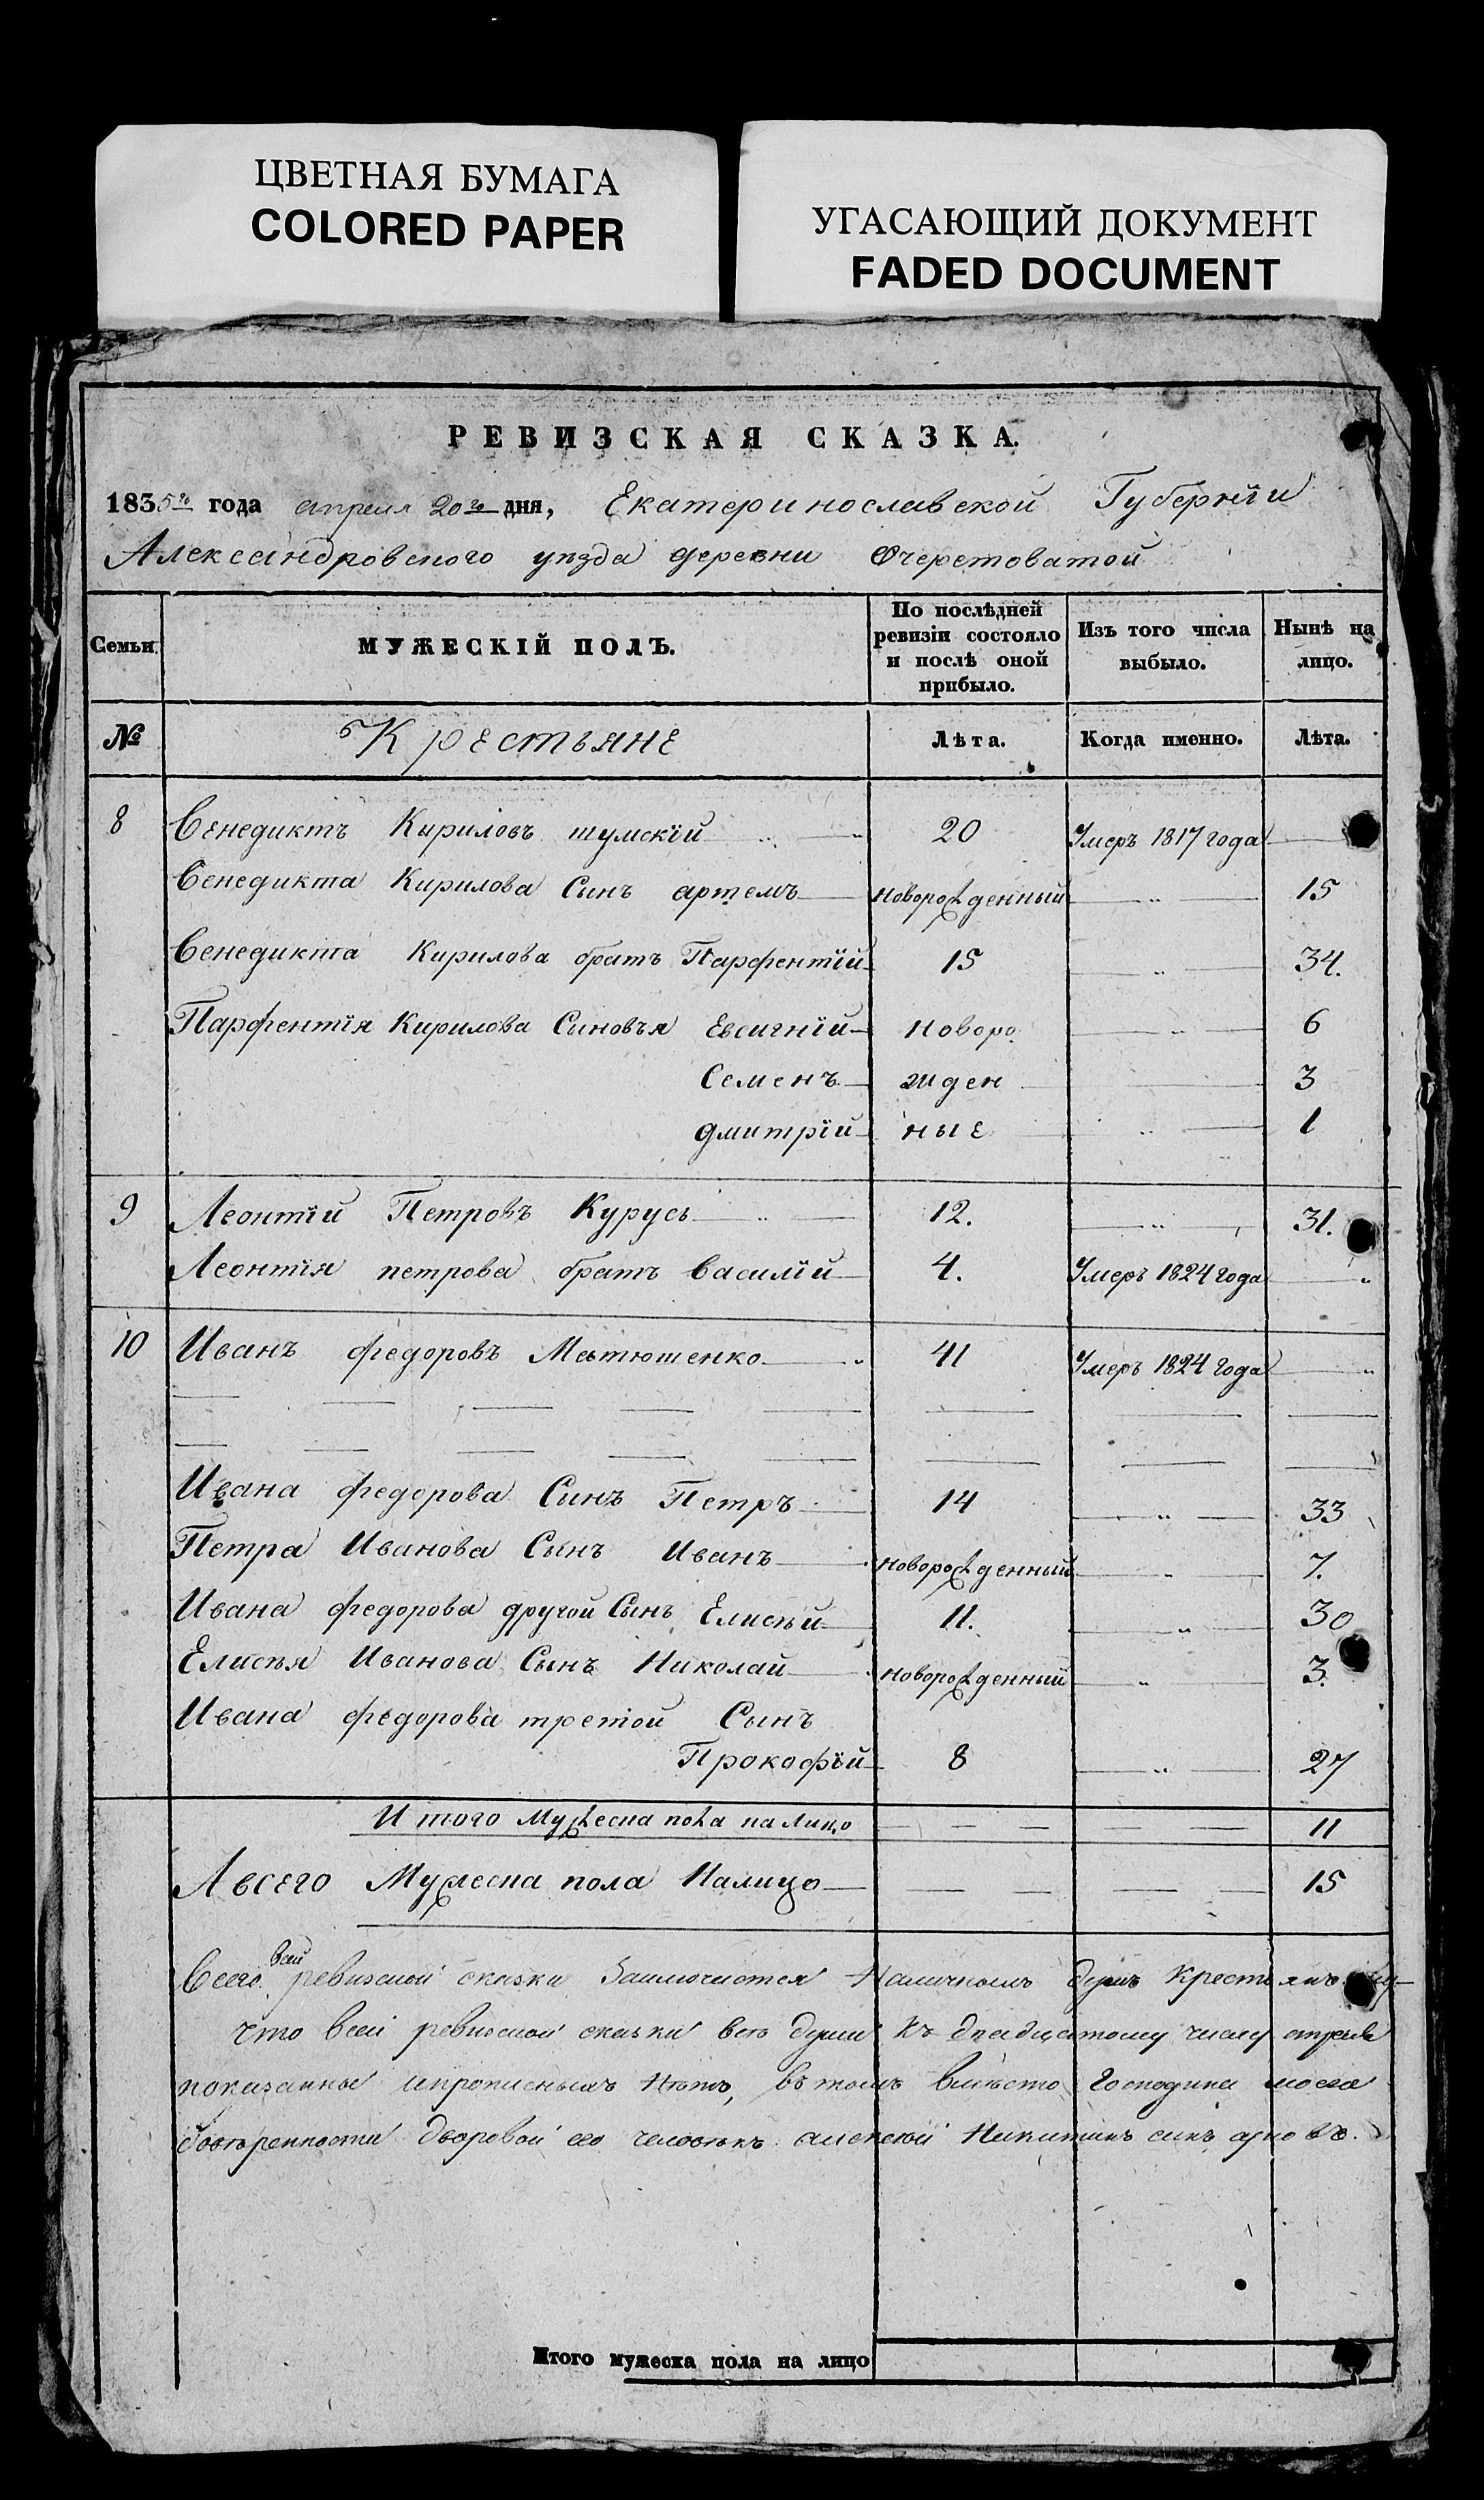 ЦВЕТНАЯ БУМАГА
COLORED PAPER
УГАСАЮЩИЙ ДОКУМЕНТ
FADED DOCUMENT
РЕВИЗСКАЯ СКАЗКА.
1835го года апреля 20го дня, Екатеринославской Губернїи
Александровского уѣзда деревни Очеретоватой
Семьи. МУЖЕСКІЙ ПОЛЪ. По послѣдней ревизіи состояло и послѣ оной прибыло. Изъ того числа выбыло. Нынѣ на лицо.
№ Крестьяне Лѣта. Когда именно. Лѣта.
8 Венедиктъ Кириловъ шумскїй 20 Умеръ 1817 года
Венедикта Кирилова Сынъ артемъ новорожденный 15
Венедикта Кирилова братъ Парфентїй 15 34.
Парфентїя Кирилова Сыновья Евсигнїй новоро 6
Семенъ жден 3
дмитрїй ные 1
9 Леонтїй Петровъ Курусь 12. 31.
Леонтїя петрова братъ василїй 4. Умеръ 1824 года
10 Иванъ федоровъ Матюшенко 41 Умеръ 1824 года
Ивана федорова Синъ Петръ 14 33
Петра Иванова Сынъ Иванъ новорожденный 7.
Ивана федорова другой Сынъ Елисѣй 11. 30
Елисѣя Иванова Сынъ Николай новорожденный 3.
Ивана федорова третой Сынъ
Прокофїй 8 27
Итого Мужеска пола на лицо 11
А всего Мужеска пола Налицо 15
Всего всей ревизской сказки Наличномъ душъ Крестьянъ
что всей ревизской сказки всѣ души къ двадцатому числу апреля
показанны ипрописныхъ Нѣтъ, въ томъ вмѣсто Господина моего
дворовой его человѣкъ алексѣй Никитинъ синъ
Итого мужеска пола на лицо